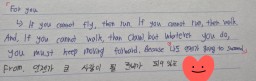 For you
↳ If you cannot fly, then run. If you cannot run, then walk
And, If you cannot walk, then crawl but whatever you do,
you must keep moving forward. Because US going to succeed
From. 언젠가 큰 사람이 될 되어 있는